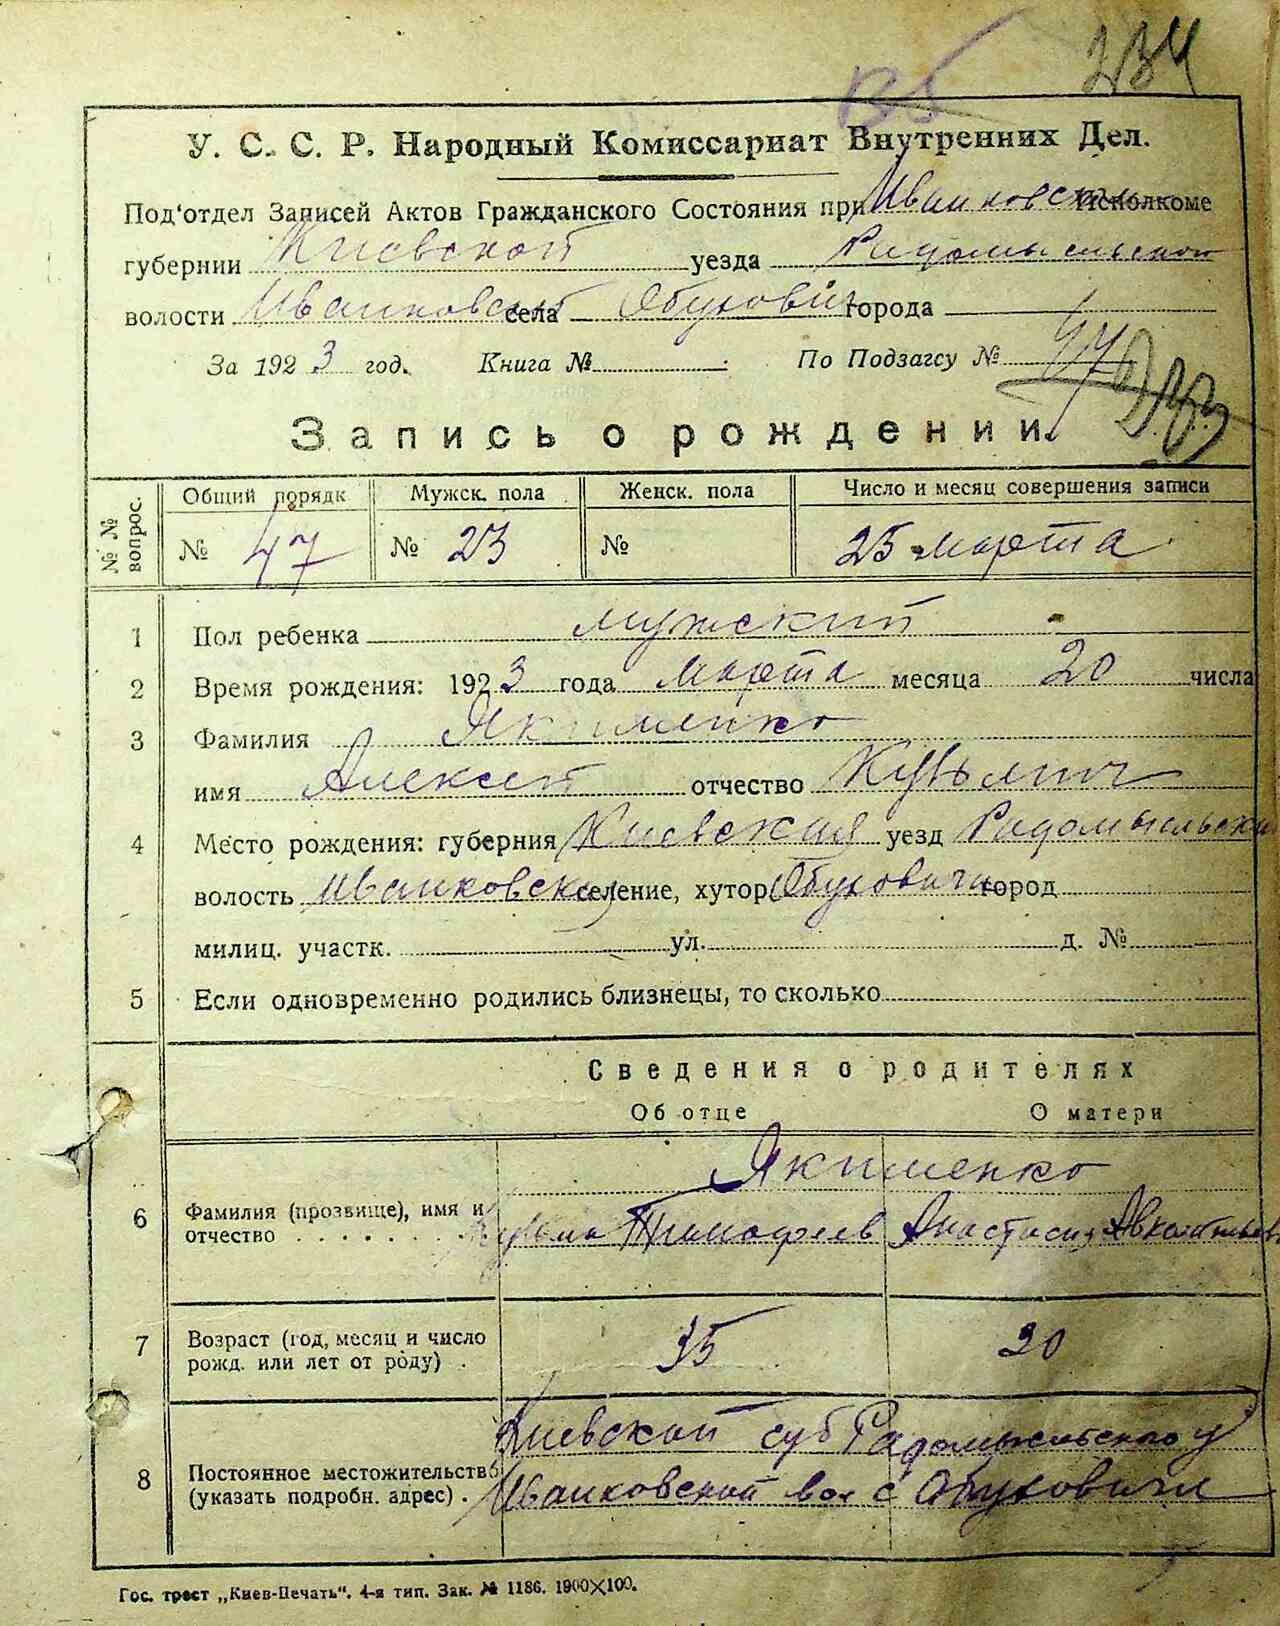 234
У. С. С. Р. Народный Комиссариат Внутренних Дел.
Под'отдел Записей Актов Гражданского Состояния при Иванковском Исполкоме
губернии Киевской уезда Радомысльского
волости Иванковской села Обуховичи города
За 1923 год. Книга № По Подзагсу № 47
Запись о рождении.
№ № вопрос. Общий порядк Мужск. пола Женск. пола Число и месяц совершения записи
№ 47 № 23 № 25 марта
1 Пол ребенка мужский
2 Время рождения: 1923 года марта месяца 20 числа
3 Фамилия Якименко
имя Алексей отчество Кузьмич
4 Место рождения: губерния Киевская уезд Радомысльский
волость Иванковская селение, хутор Обуховичи город
милиц. участк. ул. д. №
5 Если одновременно родились близнецы, то сколько
Сведения о родителях
Об отце О матери
Якименко
6 Фамилия (прозвище), имя и
отчество . . . . . . . Кузьма Тимофеев Анастасия
7 Возраст (год, месяц и число
рожд. или лет от роду) . 35 30
Киевской губ Радомысльского у
8 Постоянное местожительство
(указать подробн. адрес) . Иванковской вол с Обуховичи
Гос. трест „Киев-Печать“. 4-я тип. Зак. № 1186. 1900×100.